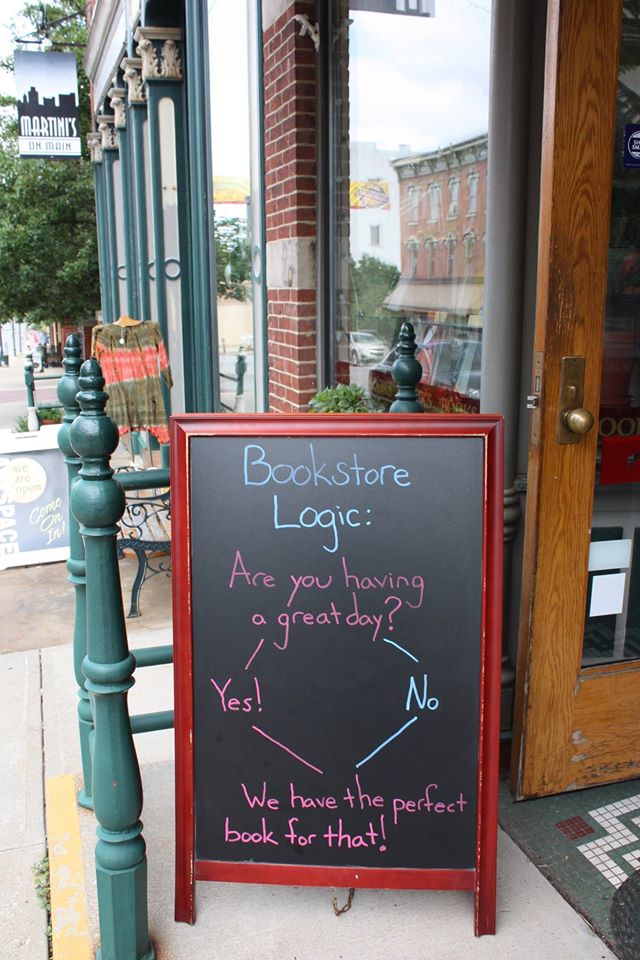 MARTINI'S
ON MAIN
we
are
open
Come
On
In!
SPACE
Bookstore
Logic:
Are you having
a great day?
Yes!
No
We have the perfect
book for that!